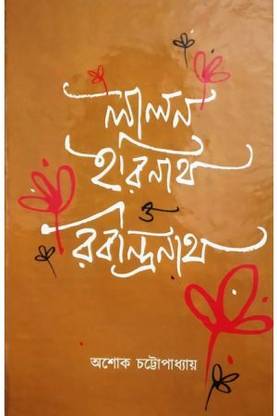 লালন
হরিনাথ
ও
রবীন্দ্রনাথ
অশোক চট্টোপাধ্যায়